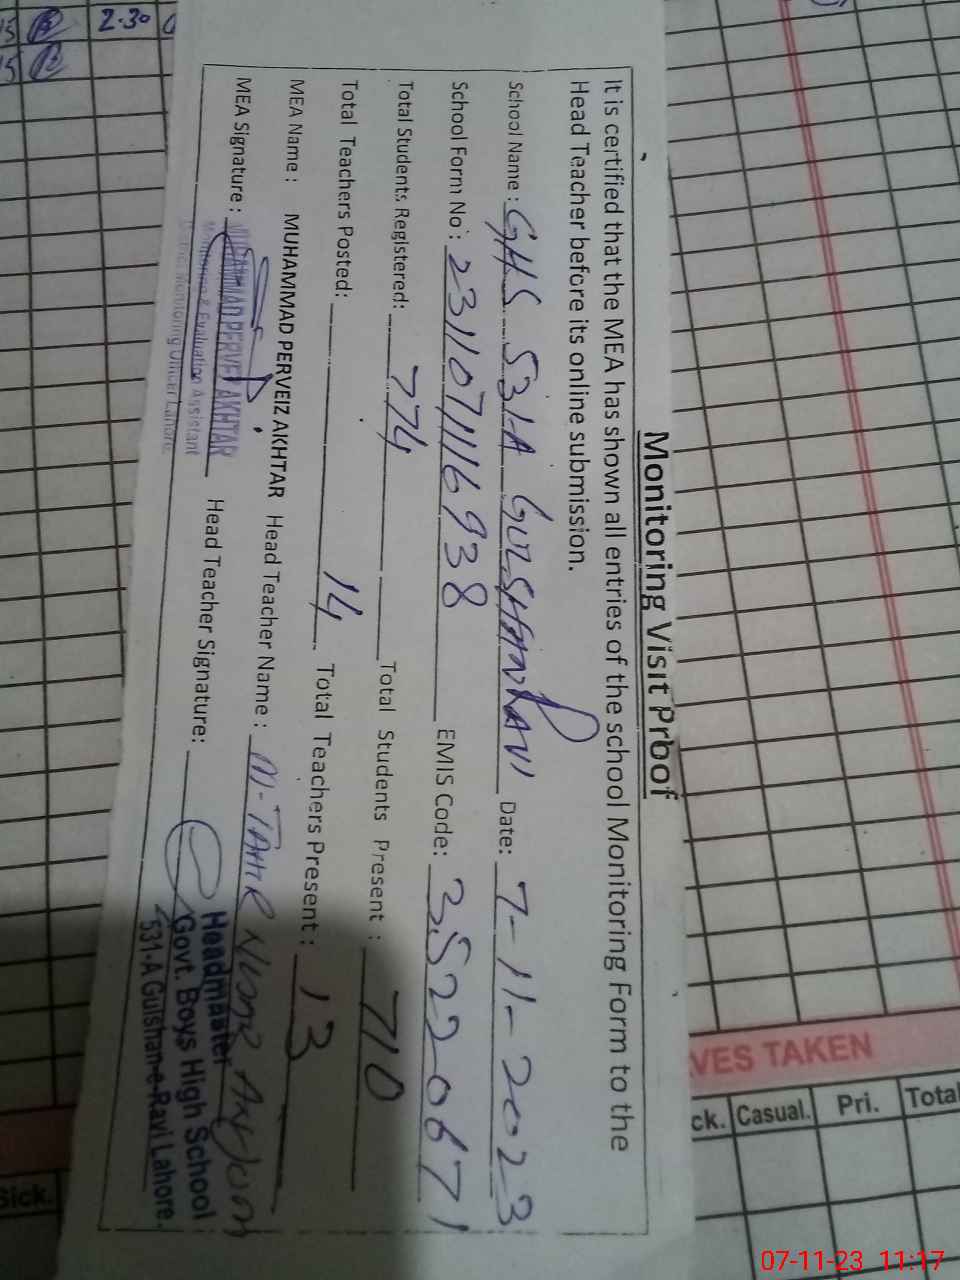 Monitoring Visit Proof
It is certified that the MEA has shown all entries of the school Monitoring Form to the
Head Teacher before its online submission.
School Name : GHS 531-A GULSHAN RAVI Date: 7-11-2023
School Form No: 231107111 6938 EMIS Code: 35220671
Total Students Registered: 774 Total Students Present : 710
Total Teachers Posted: 14 Total Teachers Present : 13
MEA Name : MUHAMMAD PERVEIZ AKHTAR Head Teacher Name : M-TAHIR
MEA Signature : Head Teacher Signature:
MUHAMMAD PERVEIZ AKHTAR
Monitoring & Evaluation Assistant
Monitoring Officer Lahore
Headmaster
Govt. Boys High School
531-A Gulshan-e-Ravi Lahore.
2.30
VES TAKEN
ck. Casual. Pri. Total
Sick.
07-11-23 11:17